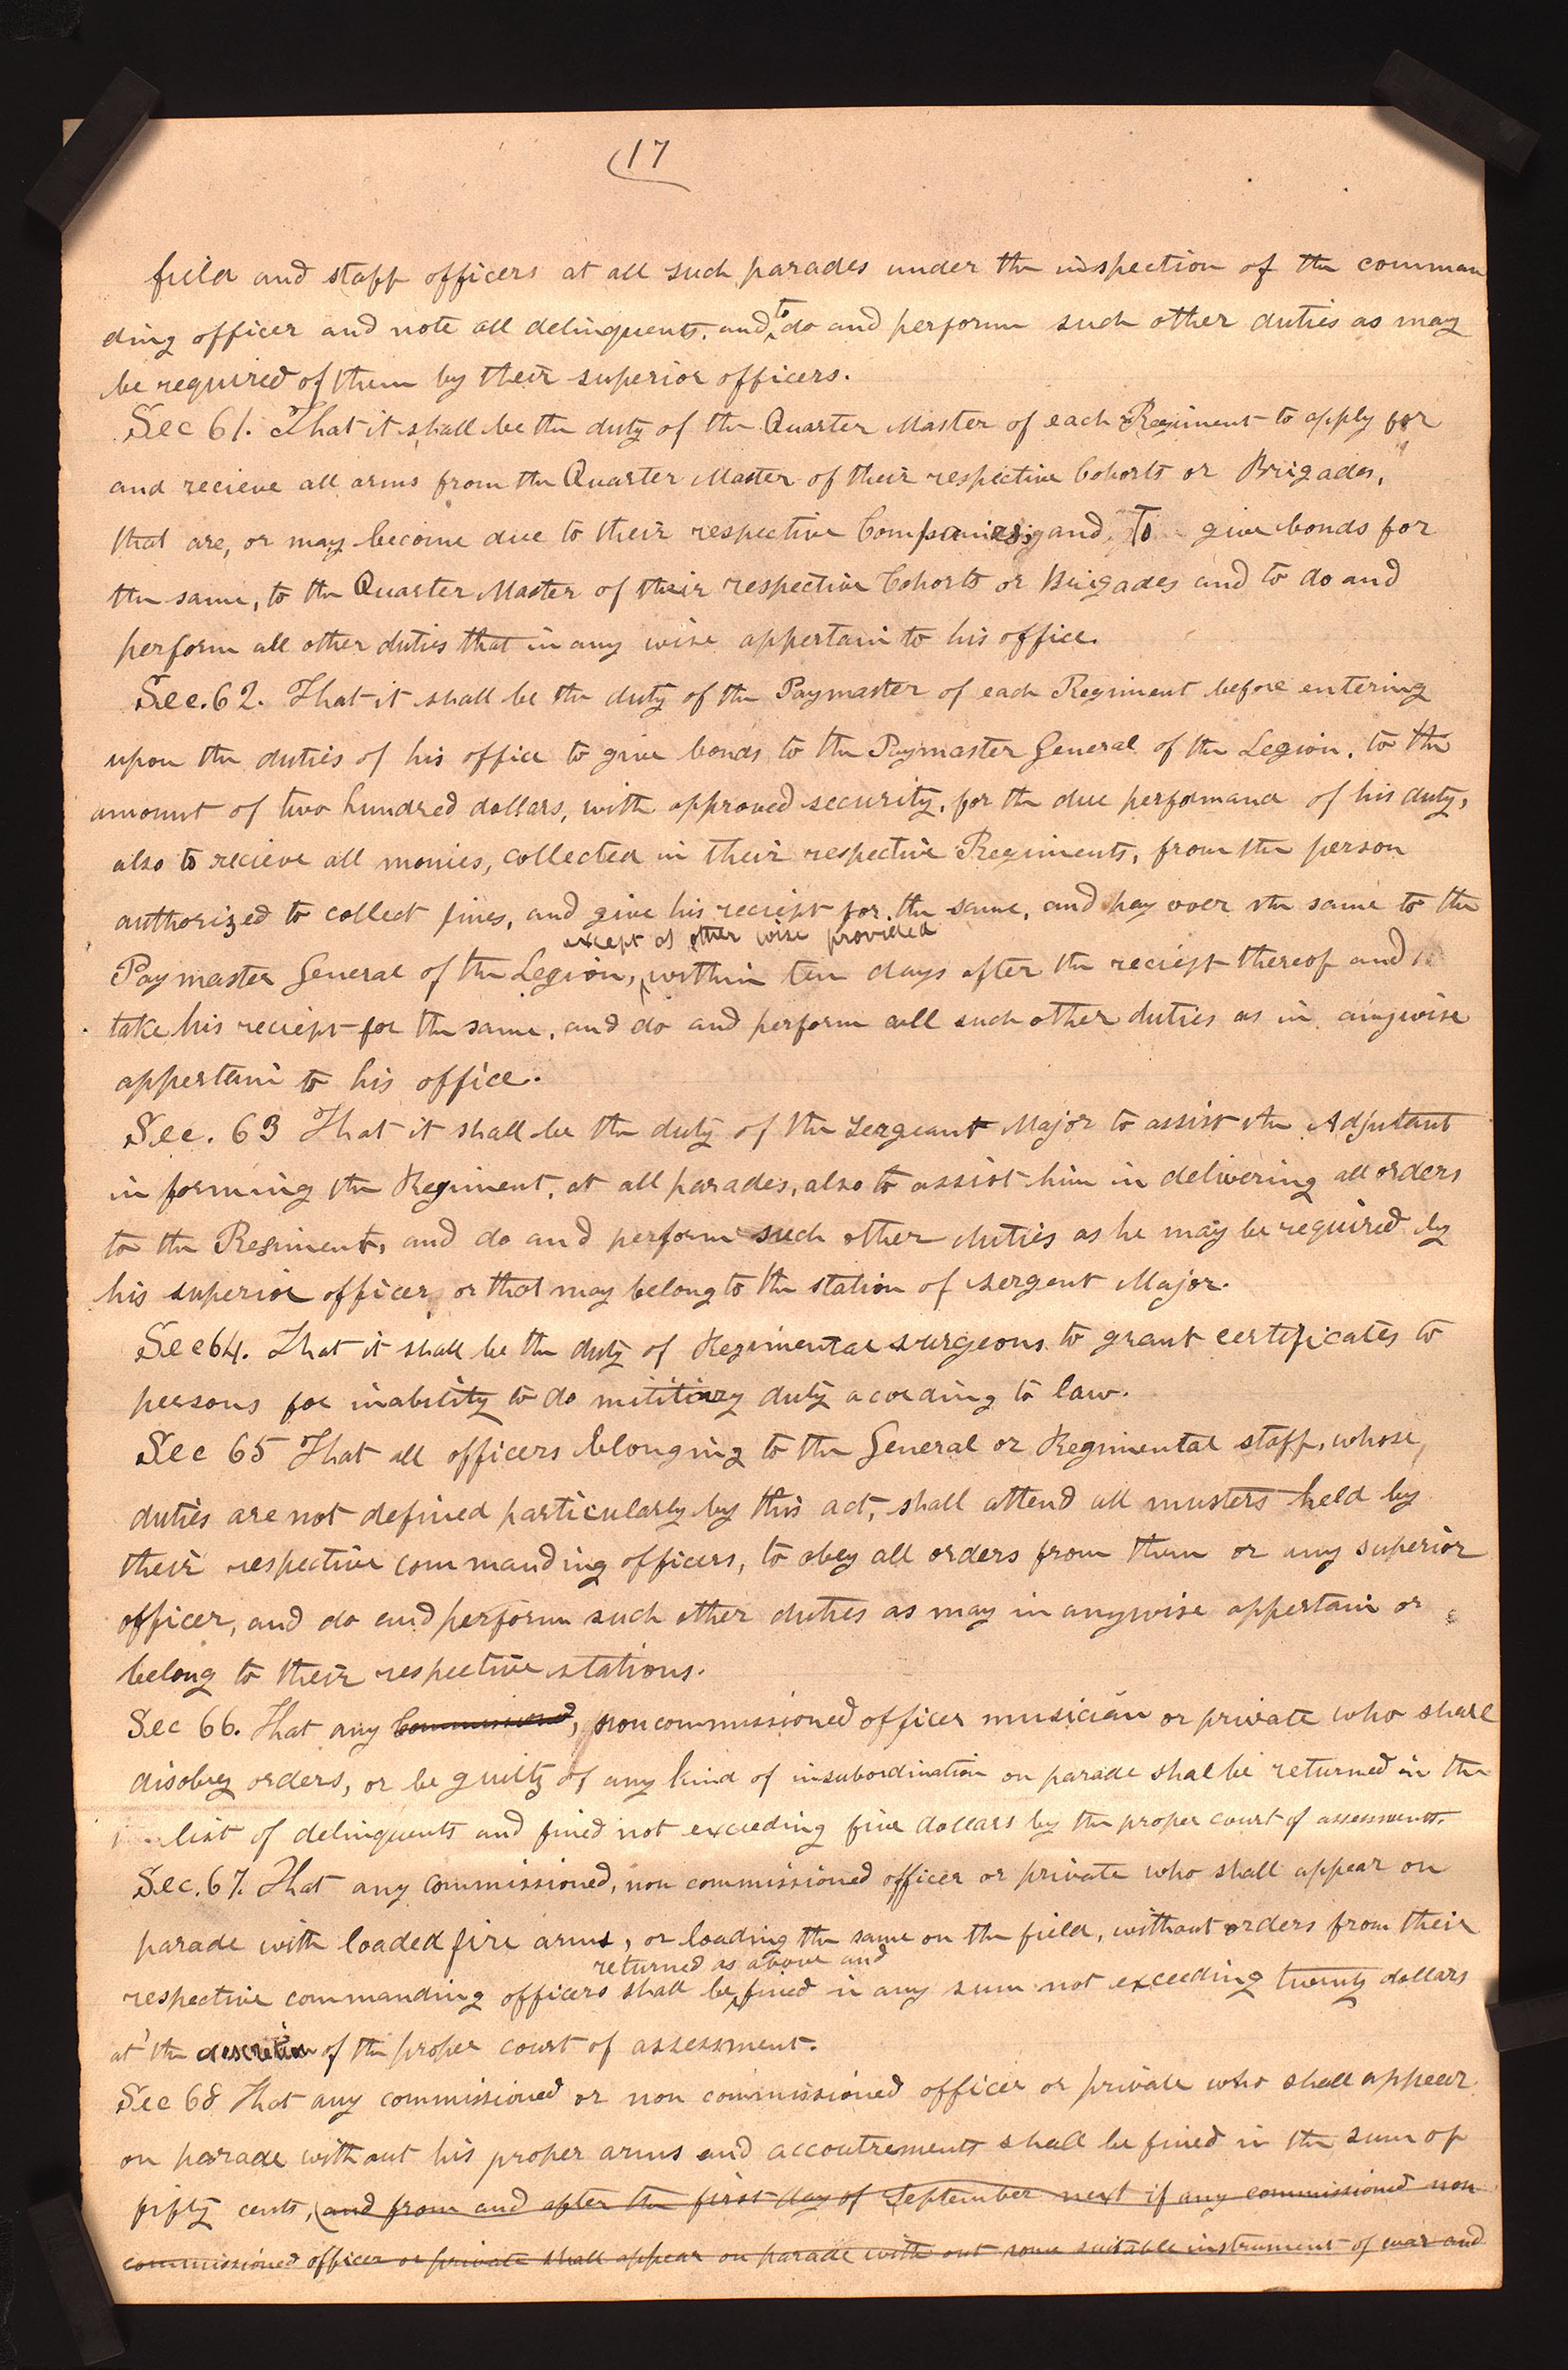 17
field and staff officers at all such parades under the inspection of the comman
ding officer and note all delinquents, and to do and perform such other duties as may
be required of them by their superior officers.
Sec 61. That it shall be the duty of the Quarter Master of each Regiment to apply for
and recieve all arms from the Quarter Master of their respective Cohorts or Brigades,
that are, or may become due to their respective Companies; and To give bonds for
the same, to the Quarter Master of their respective Cohorts or Brigades and to do and
perform all other duties that in any wise appertain to his office.
Sec. 62. That it shall be the duty of the Paymaster of each Regiment before entering
upon the duties of his office to give bonds to the Paymaster General of the Legion, to the
amount of two hundred dollars, with approved security, for the due performance of his duty,
also to recieve all monies, collected in their respective Regiments, from the person
authorized to collect fines, and give his reciept for the same, and pay over the same to the
except as other wise provided
Paymaster General of the Legion, within ten days after the reciept thereof and
take his reciept for the same, and do and perform all such other duties as in anywise
appertain to his office.
Sec. 63 That it shall be the duty of the Sergeant Major to assist the Adjutant
in forming the Regiment, at all parades, also to assist him in delivering all orders
to the Regiment, and do and perform such other duties as he may be required by
his superior officer, or that may belong to the station of sergent Major.
Sec 64. That it shall be the duty of Regimental surgeons to grant certificates to
persons for inability to do military duty acording to law.
Sec 65 That all officers belonging to the General or Regimental staff, whose,
duties are not defined particularly by this act, shall attend all musters held by
their respective commanding officers, to obey all orders from them or any superior
officer, and do and perform such other duties as may in anywise appertain or
belong to their respective stations.
Sec 66. That any Commissioned, noncommissioned officer musician or private who shall
disobey orders, or be guilty of any kind of insubordination on parade shal be returned in the
list of delinquents and fined not exceeding five dollars by the proper court of assessments.
Sec. 67. That any commissioned, non commissioned officer or private who shall appear on
parade with loaded fire arms, or loading the same on the field, without orders from their
returned as above and
respective commanding officers shall be fined in any sum not exceeding twenty dollars
at the descretion of the proper court of assessment.
Sec 68 That any commissioned or non commissioned officer or private who shall appear
on parade without his proper arms and accoutrements shall be fined in the sum of
fifty cents, (and from and after the first day of September next if any commissioned non
commissioned officer or private shall appear on parade with out some suitable instrument of war and